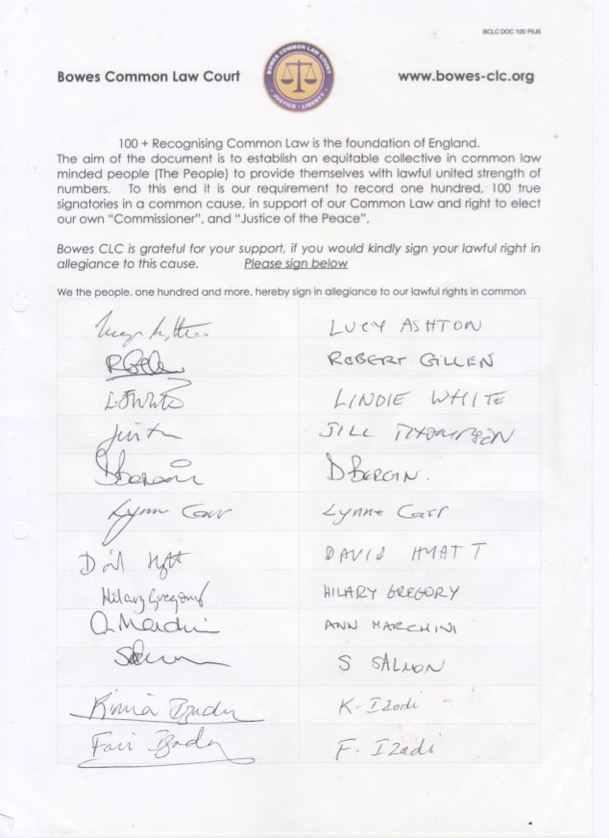 BCLC DOC 100 Plus
Bowes Common Law Court
BOWES COMMON LAW COURT
JUSTICE - LIBERTY
www.bowes-clc.org
100 + Recognising Common Law is the foundation of England.
The aim of the document is to establish an equitable collective in common law
minded people (The People) to provide themselves with lawful united strength of
numbers. To this end it is our requirement to record one hundred, 100 true
signatories in a common cause, in support of our Common Law and right to elect
our own “Commissioner”, and “Justice of the Peace”,
Bowes CLC is grateful for your support, if you would kindly sign your lawful right in
allegiance to this cause. Please sign below
We the people, one hundred and more, hereby sign in allegiance to our lawful rights in common
LUCY ASHTON
ROBERT GILLEN
LINDIE WHITE
JILL THOMPSON
D BERGIN.
Lynne Carr Lynne Carr
DAVID HYATT
Hilary Gregory HILARY GREGORY
ANN MARCHINI
S SALMON
K. Izadi
F. Izadi